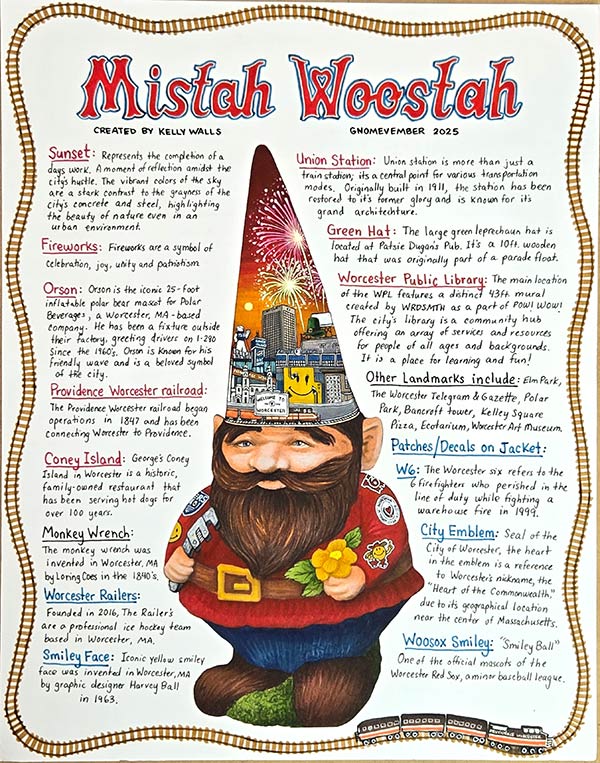 Mistah Woostah
CREATED BY KELLY WALLS
GNOMEVEMBER 2025
Sunset: Represents the completion of a
days work. A moment of reflection amidst the
city's hustle. The vibrant colors of the sky
are a stark contrast to the grayness of the
city's concrete and steel, highlighting
the beauty of nature even in an
urban environment.
Fireworks: Fireworks are a symbol of
celebration, joy, unity and patriotism
Orson: Orson is the iconic 25-foot
inflatable polar bear mascot for Polar
Beverages, a Worcester, MA-based
company. He has been a fixture outside
their factory, greeting drivers on I-290
Since the 1960's. Orson is known for his
friendly wave and is a beloved symbol
of the city.
Providence Worcester railroad:
The Providence Worcester railroad began
operations in 1847 and has been
connecting Worcester to Providence.
Coney Island: George's Coney
Island in Worcester is a historic,
family-owned restaurant that
has been serving hot dogs for
over 100 years.
Monkey Wrench:
The monkey wrench was
invented in Worcester, MA
by Loring Coes in the 1840's.
Worcester Railers:
Founded in 2016, The Railer's
are a professional ice hockey team
based in Worcester, MA.
Smiley Face: Iconic yellow smiley
face was invented in Worcester, MA
by graphic designer Harvey Ball
in 1963.
Union Station: Union station is more than just a
train station; its a central point for various transportation
modes. Originally built in 1911, the station has been
restored to it's former glory and is known for its
grand architechture.
Green Hat: The large green leprechaun hat is
located at Patsie Dugan's Pub. It's a 10ft. wooden
hat that was originally part of a parade float.
Worcester Public Library: The main location
of the WPL features a distinct 43ft. mural
created by WRDSMTH as a part of POW! WOW!
The city's library is a community hub
offering an array of services and resources
for people of all ages and backgrounds.
It is a place for learning and fun!
Other Landmarks include: Elm Park,
The Worcester Telegram & Gazette, Polar
Park, Bancroft tower, Kelley Square
Pizza, Ecotarium, Worcester Art Museum.
Patches/Decals on Jacket:
W6: The Worcester six refers to the
6 firefighters who perished in the
line of duty while fighting a
warehouse fire in 1999.
City Emblem: Seal of the
City of Worcester, the heart
in the emblem is a reference
to Worcester's nickname, the
"Heart of the Commonwealth,"
due to its geographical location
near the center of Massachusetts.
Woosox Smiley: "Smiley Ball"
One of the official mascots of the
Worcester Red Sox, a minor baseball league.
WELCOME TO
WORCESTER
PROVIDENCE WORCESTER